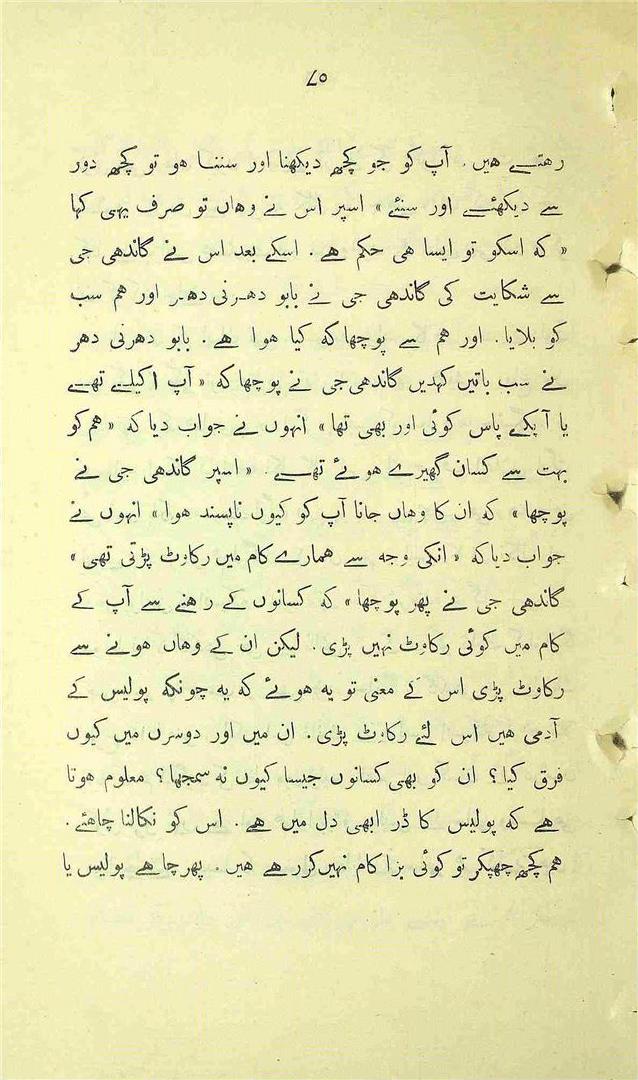 ۷۰
رهتے هیں. آپ کو جو کچھ دیکھنا اور سننا هو تو کچھ دور
سے دیکھئے اور سنئے » اسپر اس نے وهاں تو صرف یہی کہا
« که اسکو تو ایسا هی حکم هے. اسکے بعد اس نے گاندھی جی
سے شکایت کی گاندھی جی نے بابو دهرنی دهر اور هم سب
کو بلایا. اور هم سے پوچھا که کیا هوا هے. بابو دهرنی دهر
نے سب باتیں کہدیں گاندھی جی نے پوچھا که « آپ اکیلے تھے
یا آپکے پاس کوئی اور بھی تھا » انہوں نے جواب دیا که « هم کو
بہت سے کسان گھیرے هوئے تھے. « اسپر گاندھی جی نے
پوچھا » که ان کا وهاں جانا آپ کو کیوں ناپسند هوا » انہوں نے
جواب دیا که « انکی وجه سے همارے کام میں رکاوٹ پڑتی تھی »
گاندھی جی نے پھر پوچھا » که کسانوں کے رهنے سے آپ کے
کام میں کوئی رکاوٹ نہیں پڑی. لیکن ان کے وهاں هونے سے
رکاوٹ پڑی اس کے معنی تو یه هوئے که یه چونکه پولیس کے
آدمی هیں اس لئے رکاوٹ پڑی. ان میں اور دوسرں میں کیوں
فرق کیا؟ ان کو بھی کسانوں جیسا کیوں نه سمجھا؟ معلوم هوتا
هے که پولیس کا ڈر ابھی دل میں هے. اس کو نکالنا چاهئے.
هم کچھ چھپکر تو کوئی بڑا کام نہیں کررهے هیں. پھر چاهے پولیس یا